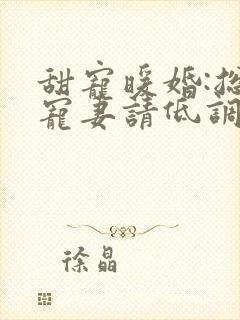 甜寵暖婚:
寵妻請低調
徐晶